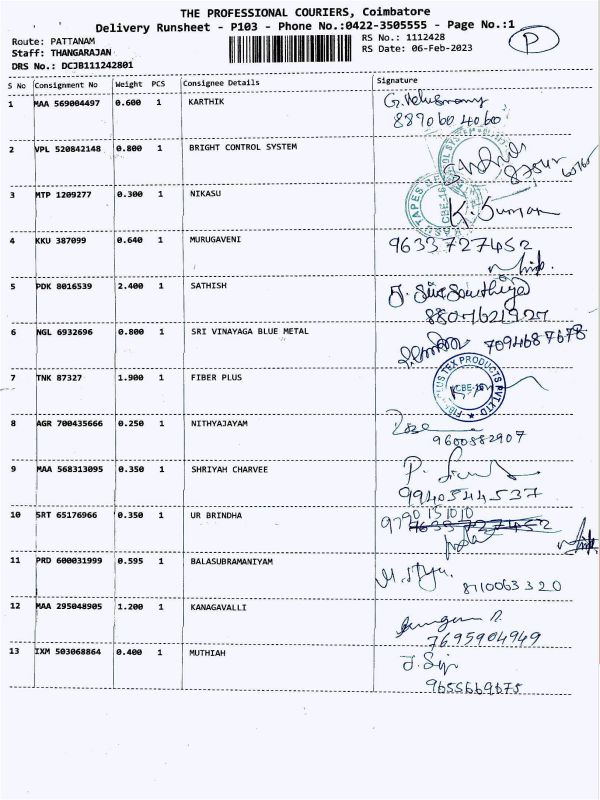 THE PROFESSIONAL COURIERS, Coimbatore
Delivery Runsheet - P103 - Phone No.:0422-3505555 - Page No.:1
Route: PATTANAM RS No.: 1112428 P
Staff: THANGARAJAN RS Date: 06-Feb-2023
DRS No.: DCJB111242801
S No Consignment No Weight PCS Consignee Details Signature
1 MAA 569004497 0.600 1 KARTHIK
2 VPL 520842148 0.800 1 BRIGHT CONTROL SYSTEM
3 MTP 1209277 0.300 1 NIKASU K. Suman
4 KKU 387099 0.640 1 MURUGAVENI 9633727452
5 PDK 8016539 2.400 1 SATHISH
8807621927
6 NGL 6932696 0.800 1 SRI VINAYAGA BLUE METAL 7094687678
7 TNK 87327 1.900 1 FIBER PLUS
8 AGR 700435666 0.250 1 NITHYAJAYAM
9600382907
9 MAA 568313095 0.350 1 SHRIYAH CHARVEE
9940544537
10 SRT 65176966 0.350 1 UR BRINDHA 9790151010
11 PRD 600031999 0.595 1 BALASUBRAMANIYAM
8710063320
12 MAA 295048905 1.200 1 KANAGAVALLI
7695904949
13 IXM 503068864 0.400 1 MUTHIAH
9655669675